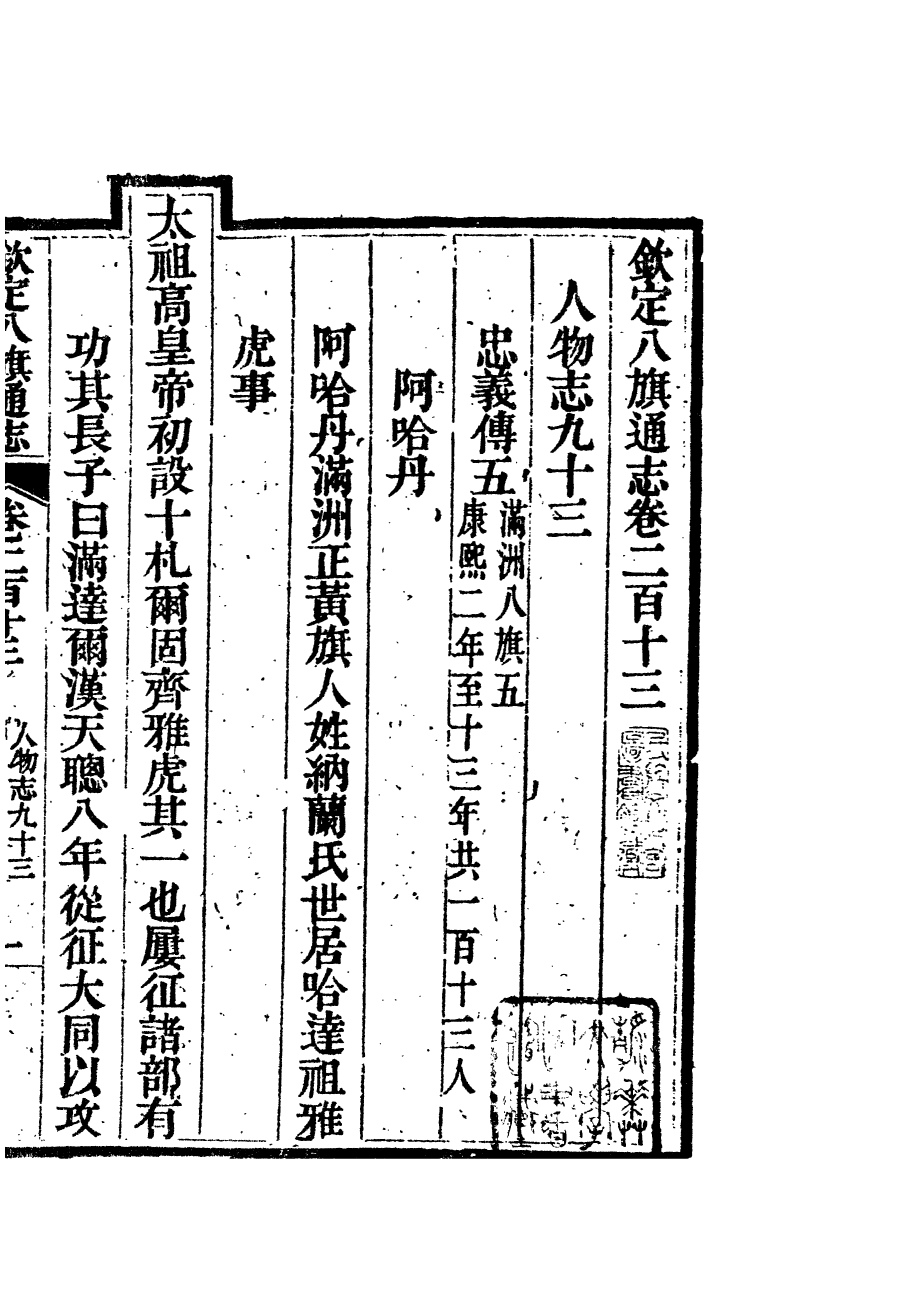 欽定八旗通志卷二百十三
人物志九十三
忠義傳五
滿洲八旗五
康熙二年至十三年共一百十三人
阿哈丹
阿哈丹滿洲正黃旗人姓納蘭氏世居哈達祖雅
虎事
太祖高皇帝初設十札爾固齊雅虎其一也屢征諸部有
功其長子曰滿達爾漢天聰八年從征大同以攻
欽定八旗通志
卷二百十三
人物志九十三
一